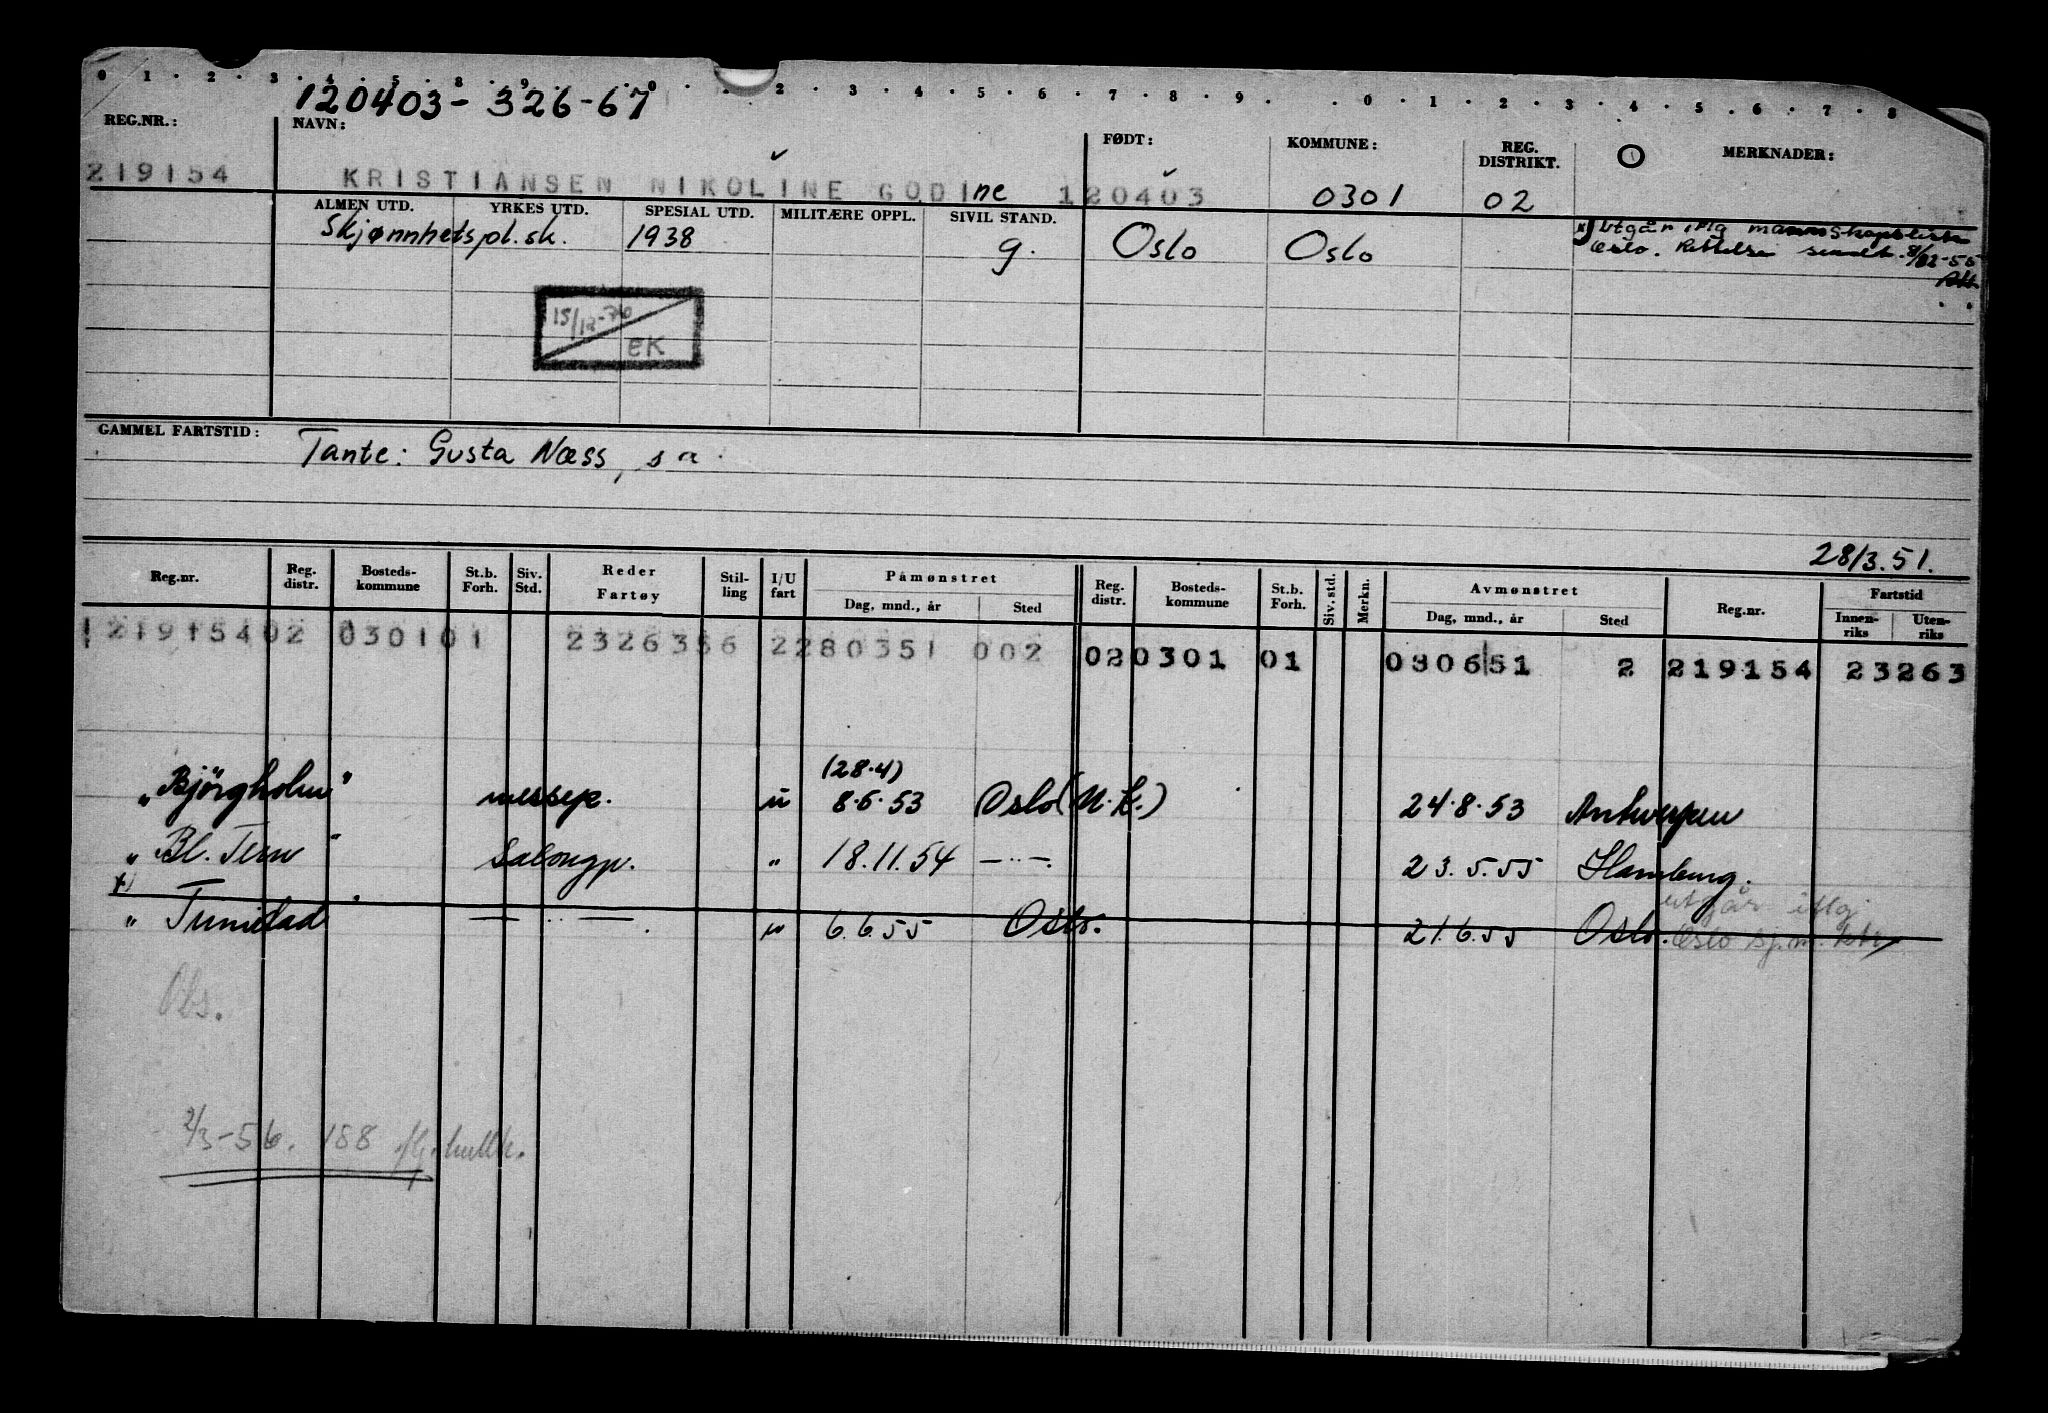 0 1 2 3 4 5 8 9 0 2 3 4 5 6 7 8 9 0 1 2 3 4 5 6 7 8
120403-326-67
REG.NR.: NAVN: FØDT: KOMMUNE: REG. DISTRIKT. MERKNADER:
219154 KRISTIANSEN NIKOLINE GODINE 120403 0301 02
ALMEN UTD. YRKES UTD. SPESIAL UTD. MILITÆRE OPPL. SIVIL STAND.
Skjønnhetspl.sk. 1938 g. Oslo Oslo
x) Utgår iflg mannskapsliste
Oslo. Rettelse sendt. 8/12-55
15/12-76
eK
GAMMEL FARTSTID: Tante: Gusta Næss, s a.
28/3.51.
Reg.nr. Reg. distr. Bosteds-kommune St.b. Forh. Siv. Std. Reder Fartøy Stil-ling I/U fart Påmønstret Dag, mnd., år Sted Reg. distr. Bosteds-kommune St.b. Forh. Siv. std. Merkn. Avmønstret Dag, mnd., år Sted Reg.nr. Fartstid Innen-riks Uten-riks
121915402 030101 2326356 2280351 002 020301 01 030651 2 219154 23263
(28.4)
"Bjørgholm" messep. u 8.6.53 Oslo (N.K.) 24.8.53 Antwerpen
"Bl. Tern" Salongp. " 18.11.54 —"— 23.5.55 Hamburg.
x)
"Trinidad" —"— " 6.6.55 Oslo. 21.6.55 Oslo.
utgår iflg
Oslo sj.m.ktr
Obs.
2/3-56. 188 hullk.